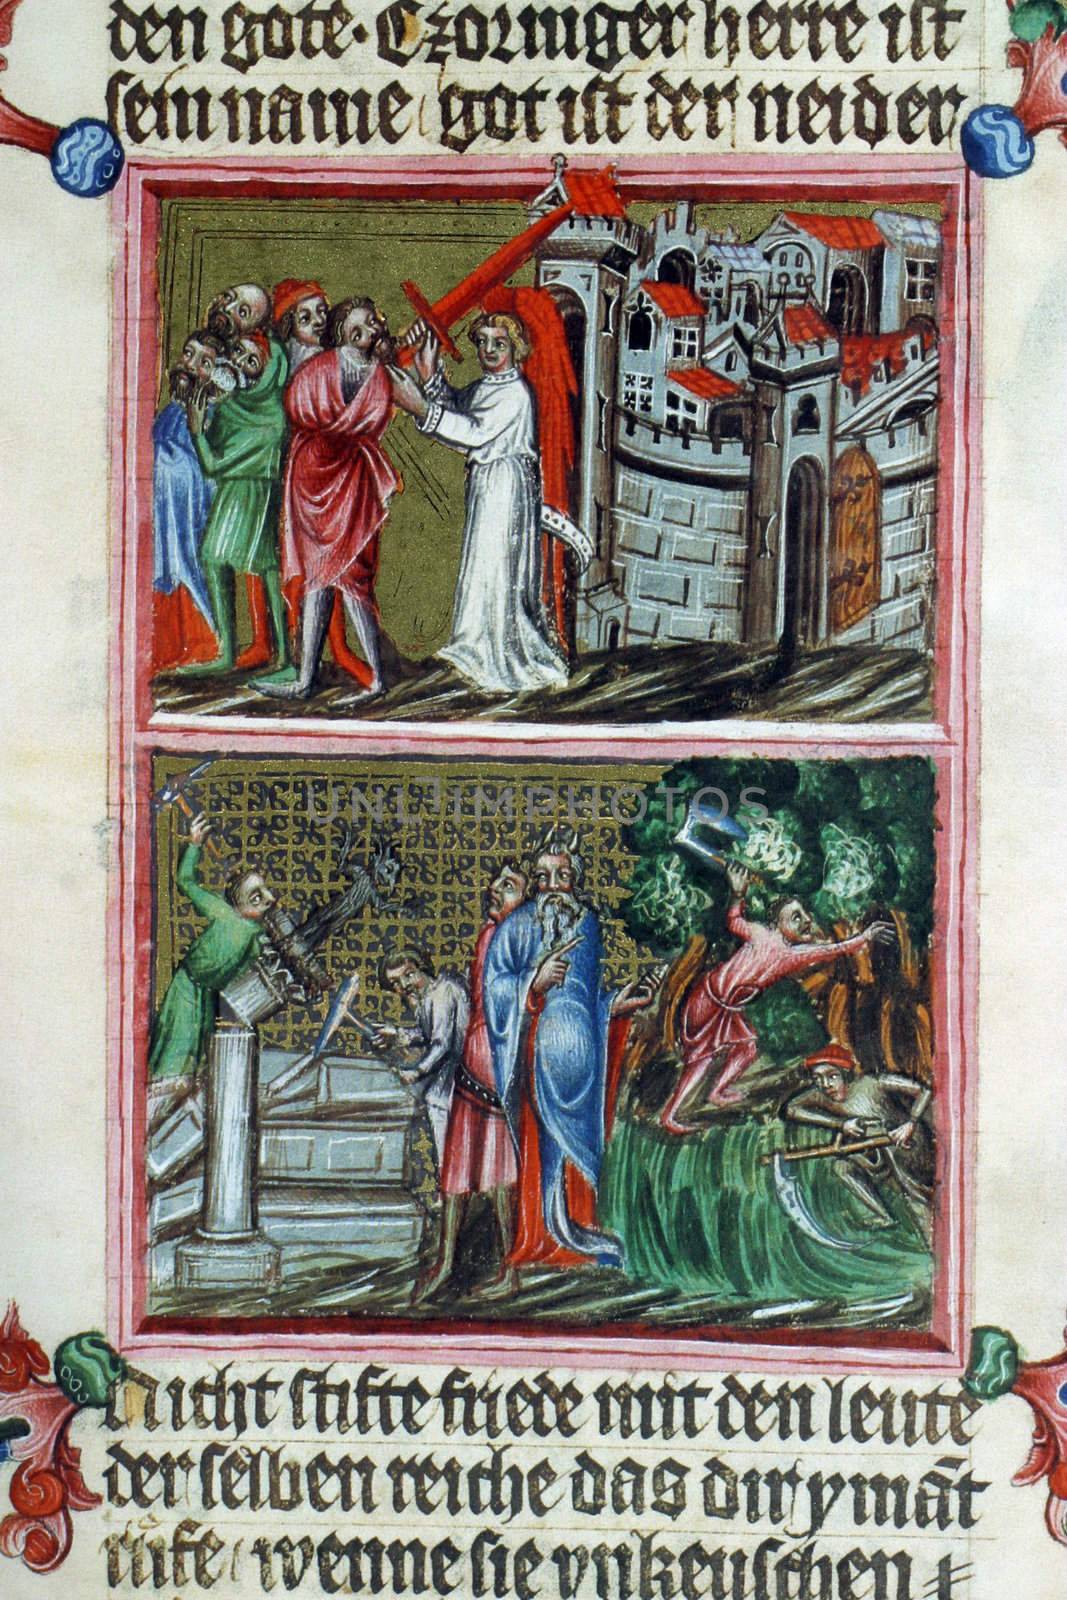 den gote · Czorniger herre ist
sein name / got ist der neider
UNLIMPHOTOS
Nicht stifte friede mit den leute
der selben reiche das dir ymāt
rufe / wenne sie vnkeuschen